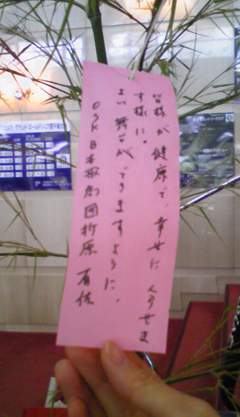 皆様が健康で、幸せに人々せま
す様に。
よい舞台ができますように。
OSK日本歌劇団折原 有佐